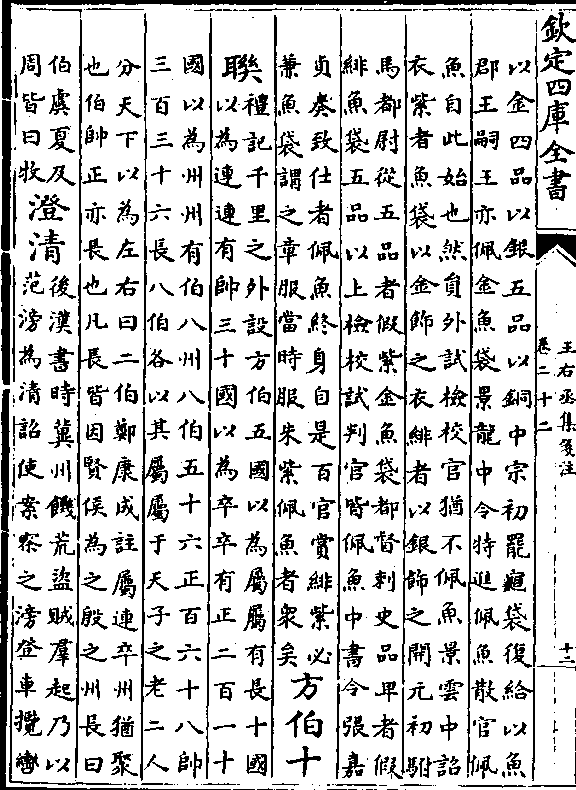 欽定四庫全書
王右丞集箋注
卷二十二
十二
以金四品以銀五品以銅中宗初罷龜袋復給以魚
郡王嗣王亦佩金魚袋景龍中令特進佩魚散官佩
魚自此始也然員外試檢校官猶不佩魚景雲中詔
衣紫者魚袋以金飾之衣緋者以銀飾之開元初駙
馬都尉從五品者假紫金魚袋都督刺史品卑者假
緋魚袋五品以上檢校試判官皆佩魚中書令張嘉
貞奏致仕者佩魚終身自是百官賞緋紫必
兼魚袋謂之章服當時服朱紫佩魚者衆矣
方伯十
聯
禮記千里之外設方伯五國以為屬屬有長十國
以為連連有帥三十國以為卒卒有正二百一十
國以為州州有伯八州八伯五十六正百六十八帥
三百三十六長八伯各以其屬屬于天子之老二人
分天下以為左右曰二伯鄭康成註屬連卒州猶聚
也伯帥正亦長也凡長皆因賢侯為之殷之州長曰
伯虞夏及
周皆曰牧
澄清
後漢書時冀州饑荒盜賊羣起乃以
范滂為清詔使案察之滂登車攬轡